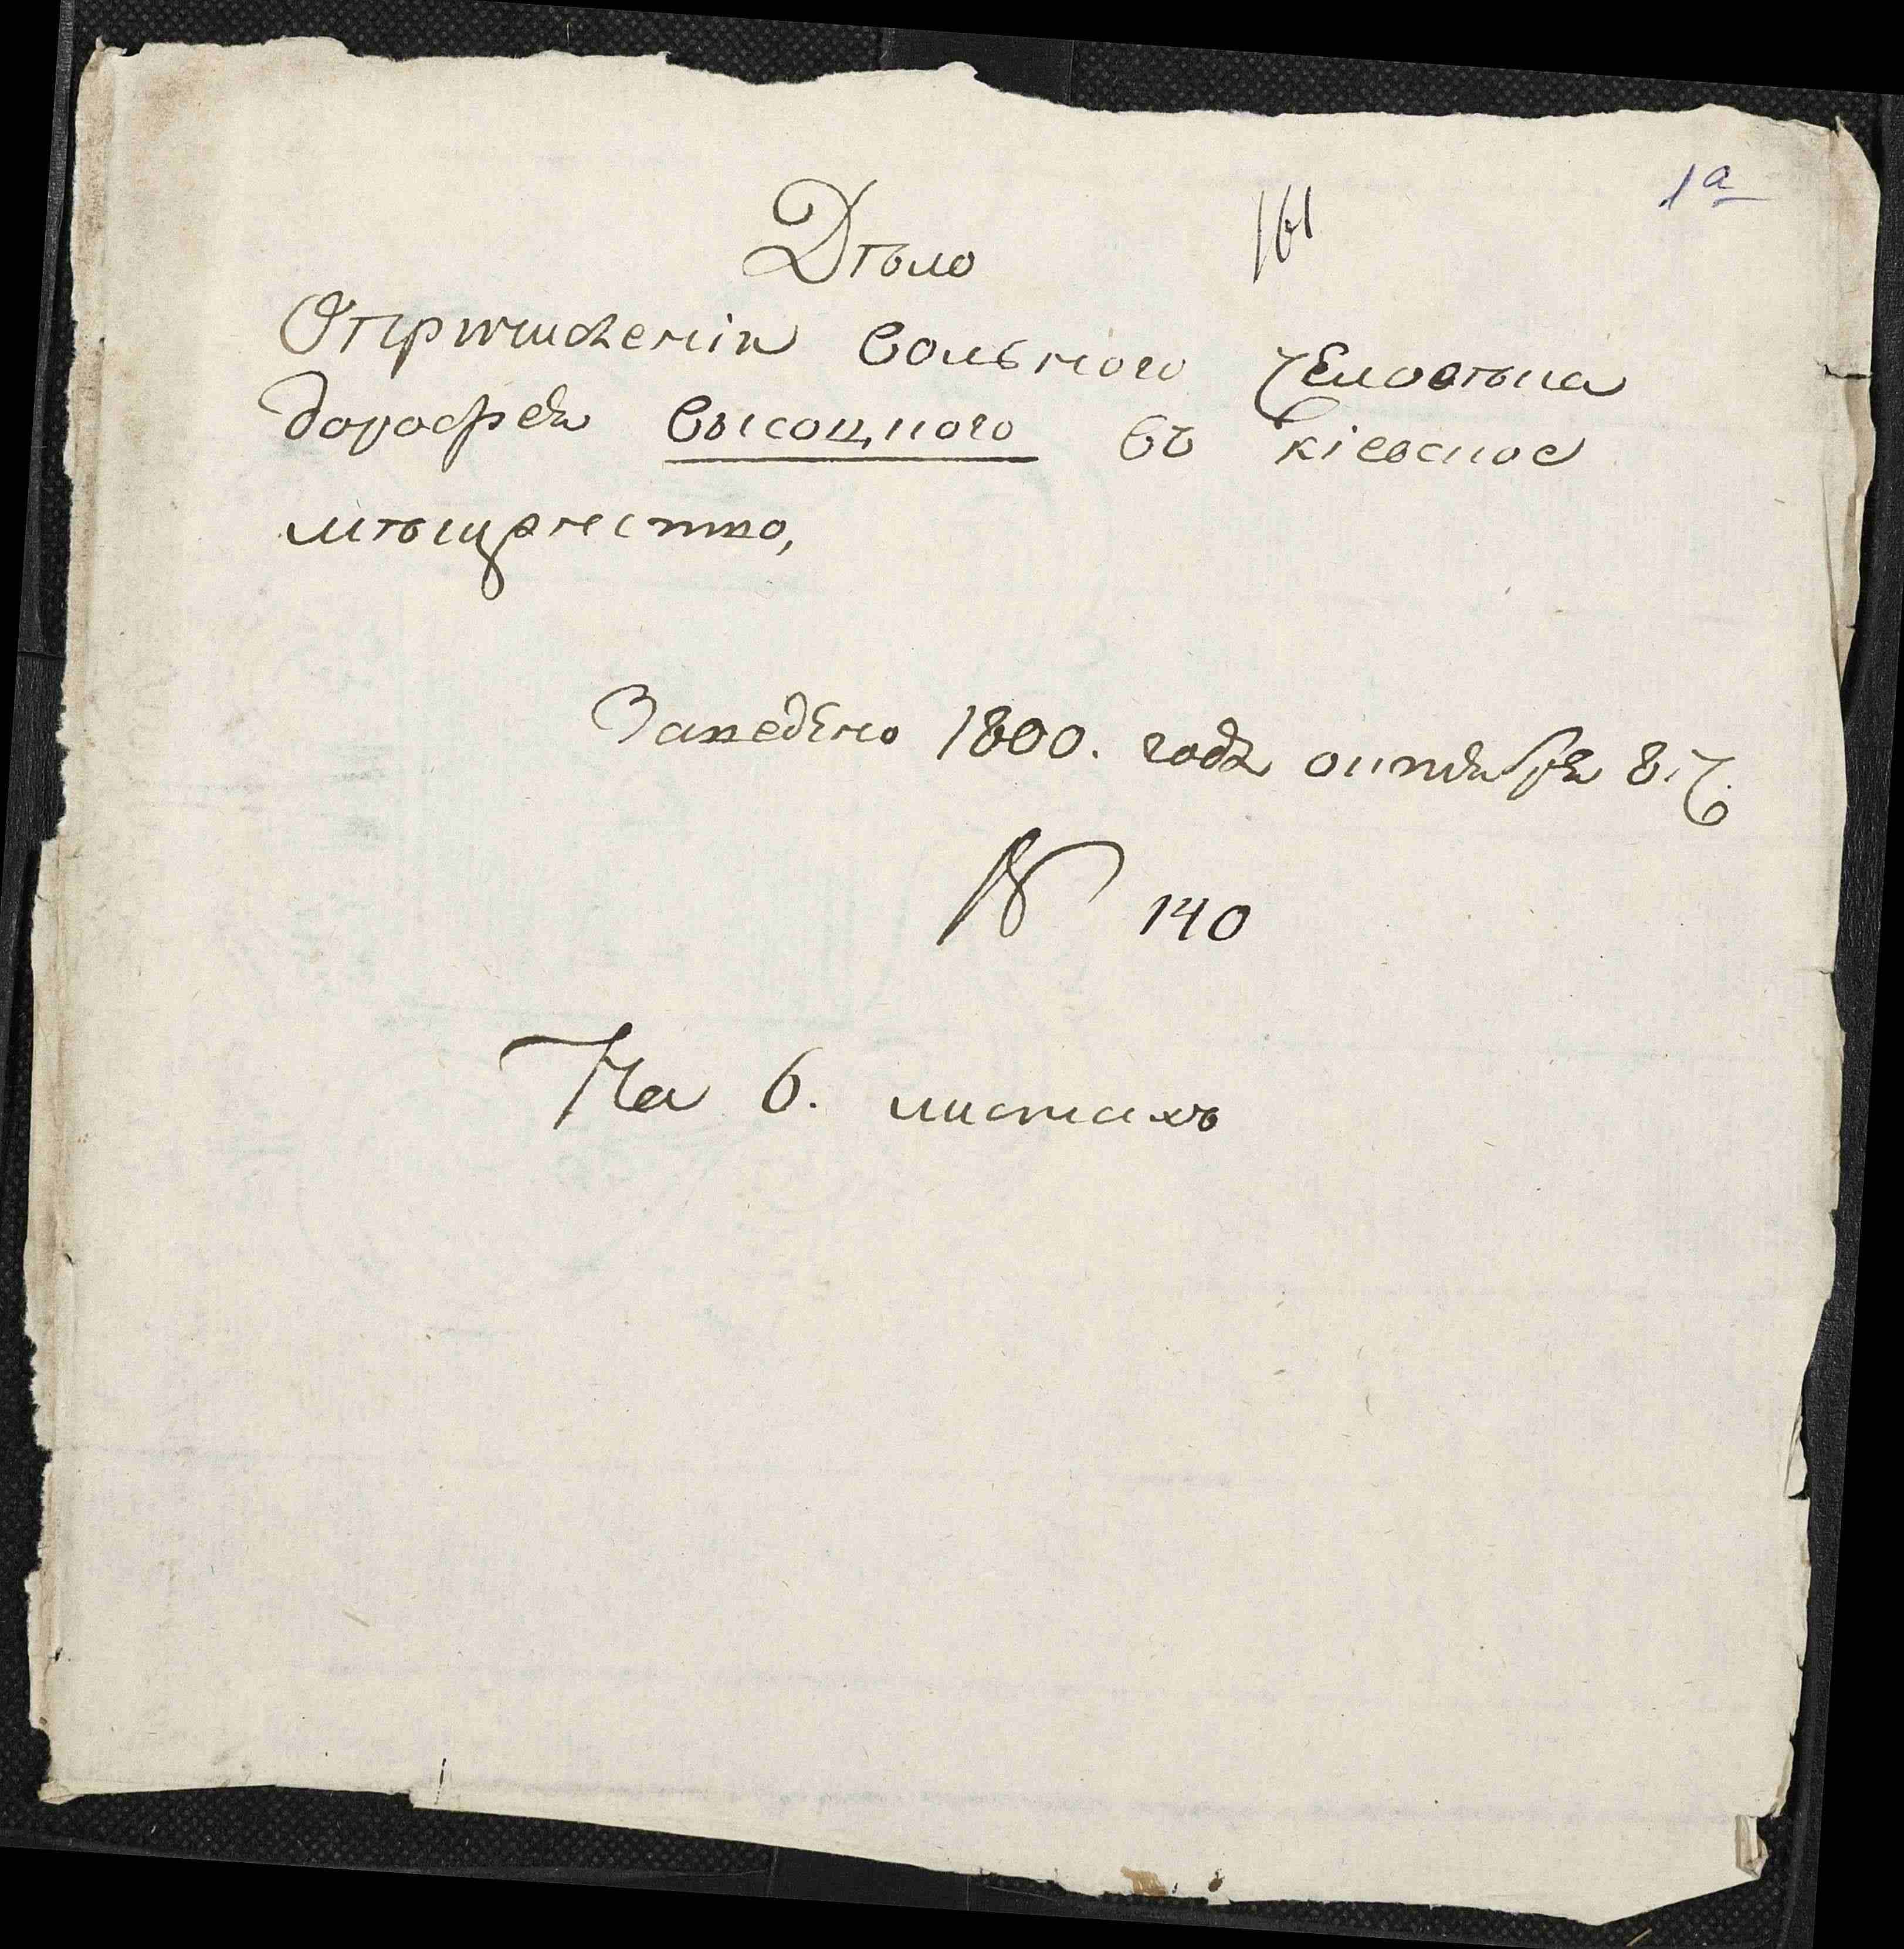 1а
161
Дѣло
Опричисленіи вольного человѣка
дорофея высоцкого въ кіевское
мѣщанество,
Заведено 1800. года октября 8. ч.
№ 140
На 6. листахъ